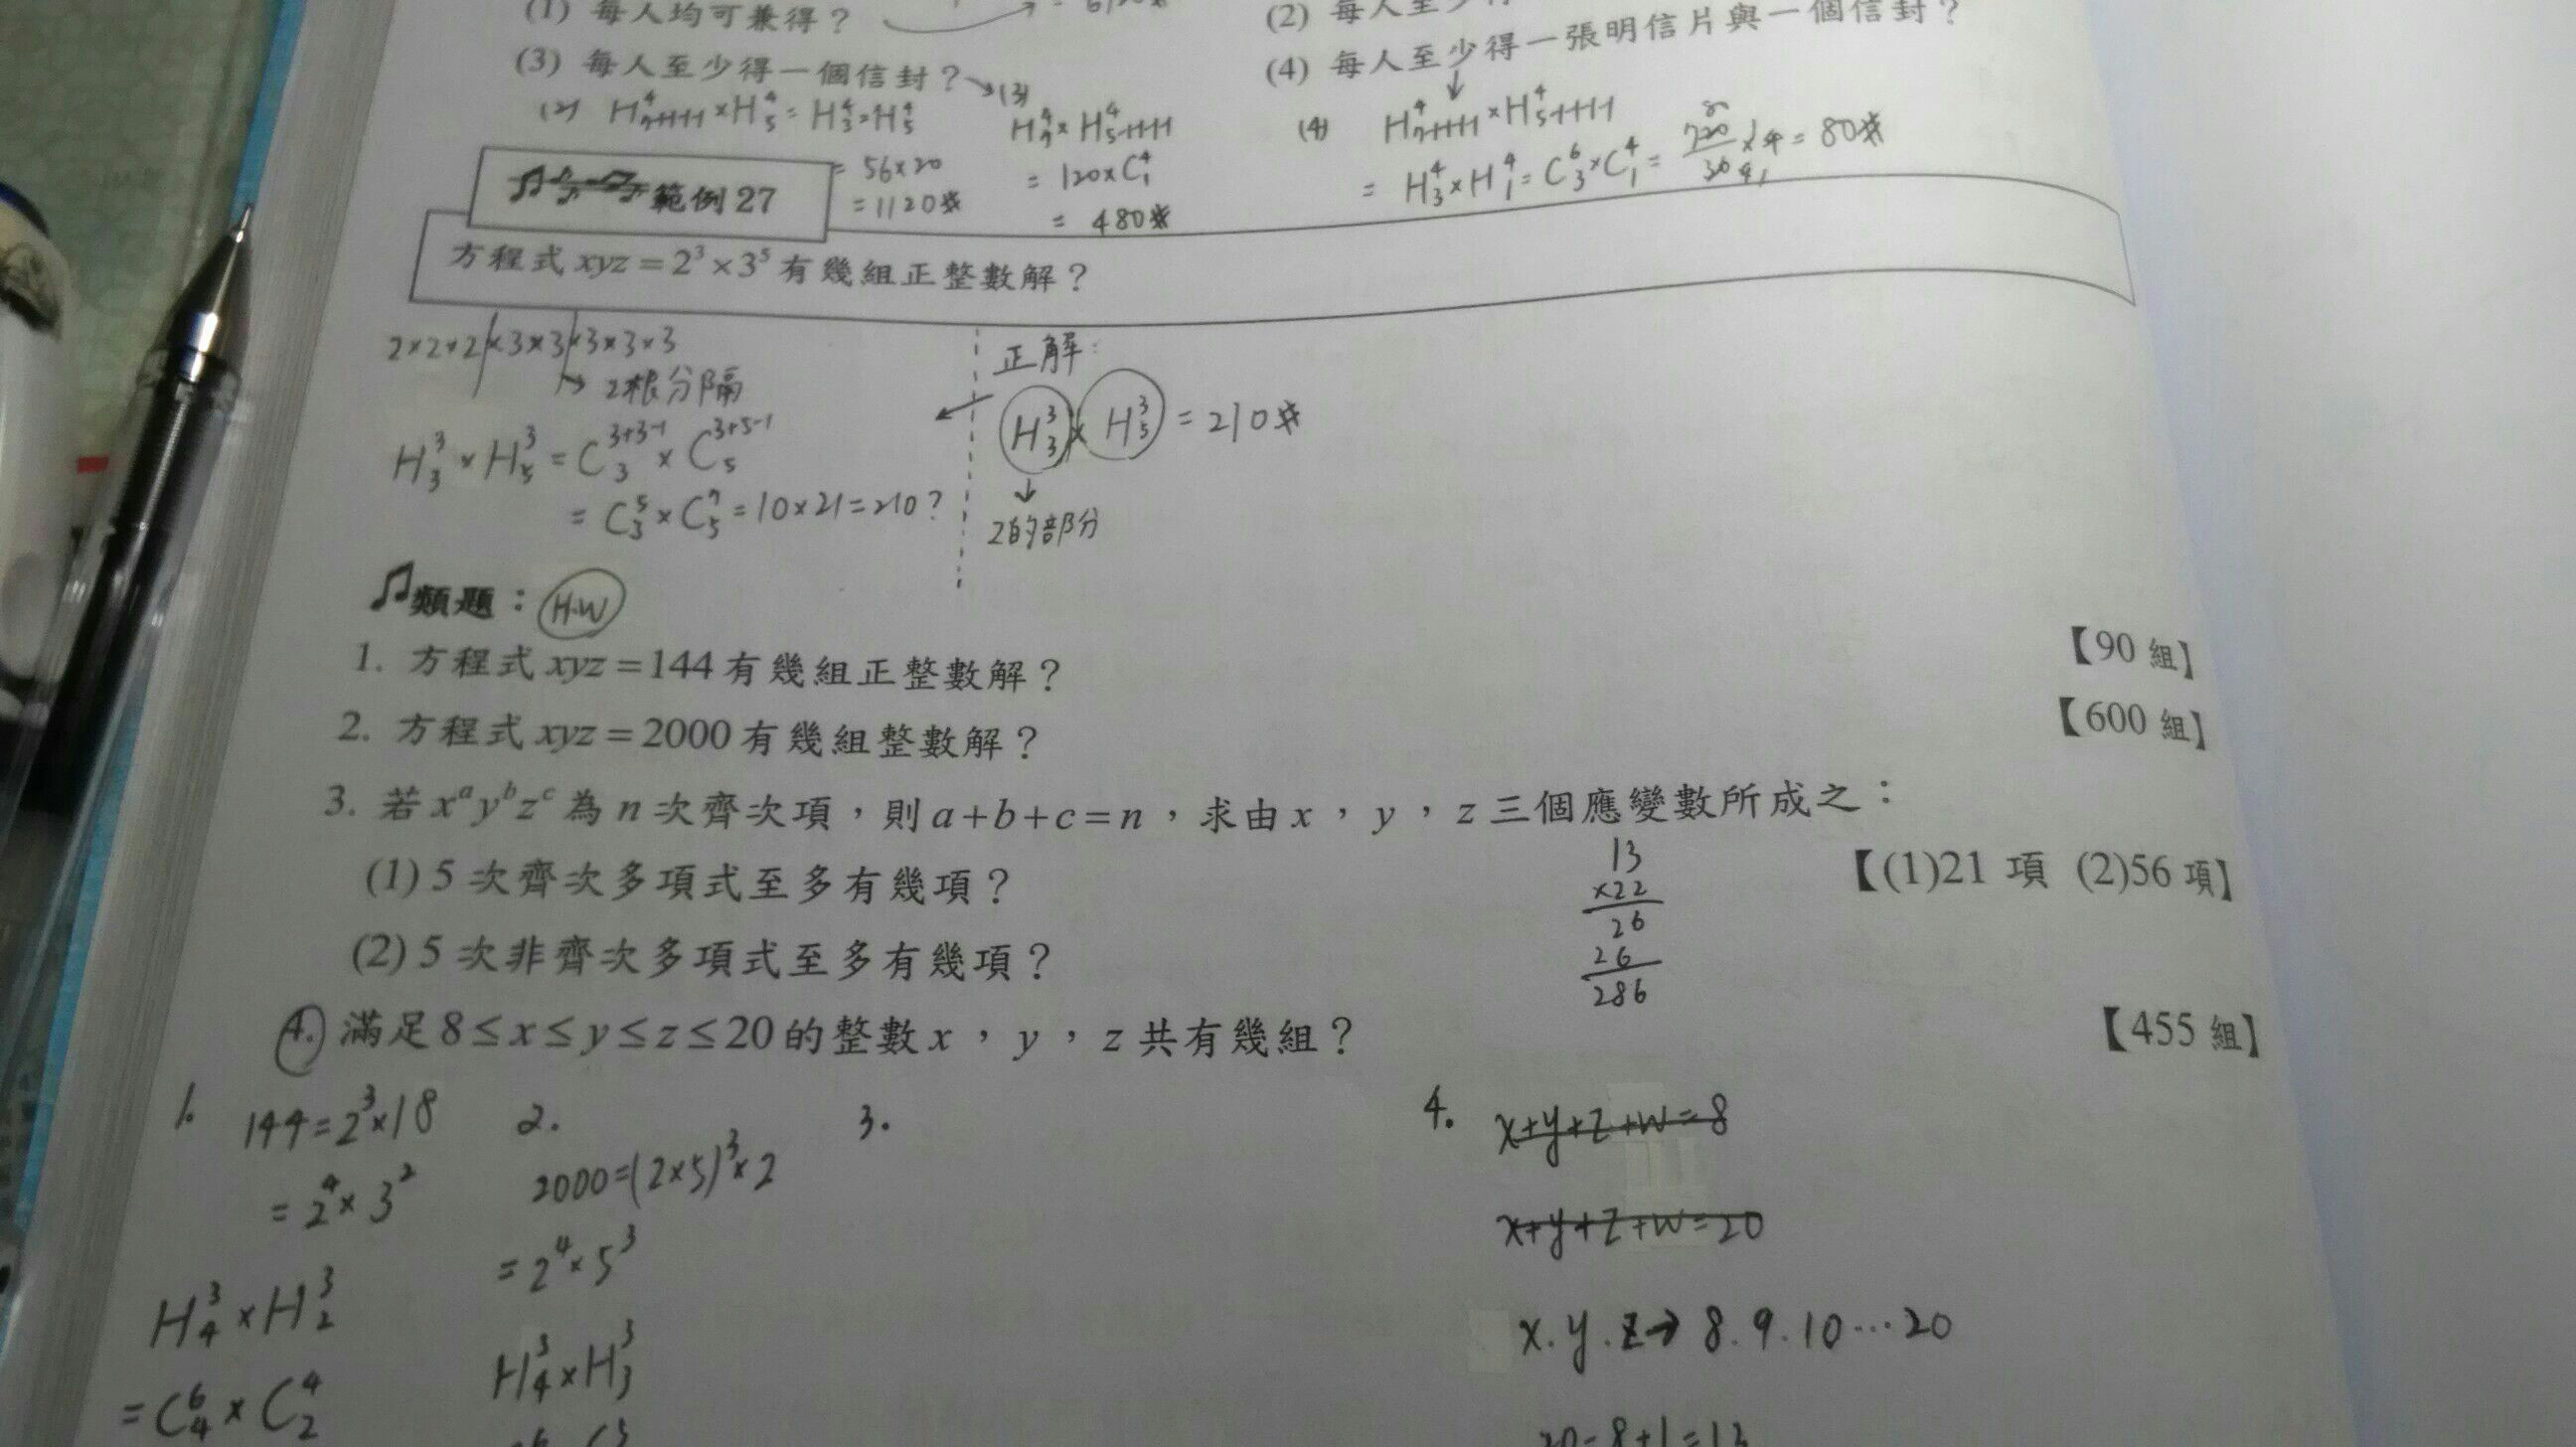 (1) 每人均可兼得？
(2) 每人至少得
(3) 每人至少得一個信封？→(3)
(4) 每人至少得一張明信片與一個信封？
(2) H⁴₇₋₁₋₁₋₁₋₁×H⁴₅=H⁴₃×H⁴₅
=56×20
=1120
H⁴₇×H⁴₅₋₁₋₁₋₁₋₁
=120×C⁴₁
=480
(4) H⁴₇₋₁₋₁₋₁₋₁×H⁴₅₋₁₋₁₋₁₋₁
=H⁴₃×H⁴₁=C⁶₃×C⁴₁=
×4=80
範例27
方程式 xyz=2³×3⁵ 有幾組正整數解？
2×2×2×3×3×3×3×3
→2根分隔
H³₃×H³₅=C³⁺³⁻¹₃×C³⁺⁵⁻¹₅
=C⁵₃×C⁷₅=10×21=210?
正解：
H³₃×H³₅=210
↓
2的部分
類題：H.W
1. 方程式 xyz=144 有幾組正整數解？ 【90 組】
2. 方程式 xyz=2000 有幾組整數解？ 【600 組】
3. 若 xᵃyᵇzᶜ 為 n 次齊次項，則 a+b+c=n，求由 x，y，z 三個應變數所成之：
(1) 5 次齊次多項式至多有幾項？ 【(1)21 項 (2)56 項】
(2) 5 次非齊次多項式至多有幾項？
13
×22
26
26
286
4. 滿足 8≤x≤y≤z≤20 的整數 x，y，z 共有幾組？ 【455 組】
1. 144=2³×18
=2⁴×3²
H³₄×H³₂
=C⁶₄×C⁴₂
2.
2000=(2×5)³×2
=2⁴×5³
H³₄×H³₃
3.
4. x+y+z+w=8
x+y+z+w=20
x.y.z→8.9.10…20
20-8+1=13